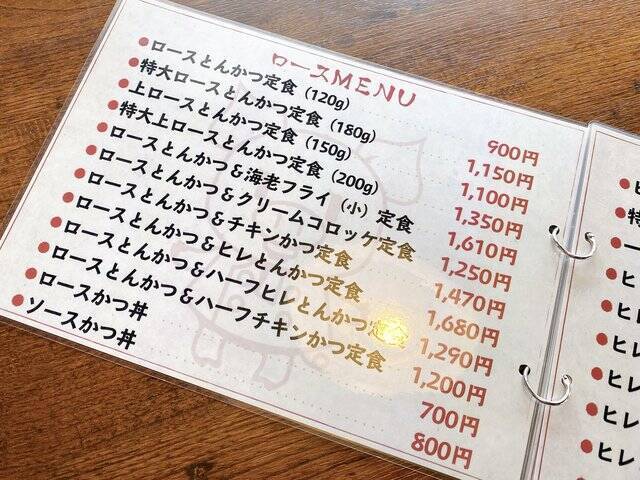 ロースMENU
●ロースとんかつ定食（120g） 900円
●特大ロースとんかつ定食（180g） 1,150円
●上ロースとんかつ定食（150g） 1,100円
●特大上ロースとんかつ定食（200g） 1,350円
●ロースとんかつ＆海老フライ（小）定食 1,610円
●ロースとんかつ＆クリームコロッケ定食 1,250円
●ロースとんかつ＆チキンかつ定食 1,470円
●ロースとんかつ＆ヒレとんかつ定食 1,680円
●ロースとんかつ＆ハーフヒレとんかつ定食 1,290円
●ロースとんかつ＆ハーフチキンかつ定食 1,200円
●ロースかつ丼 700円
●ソースかつ丼 800円
●ヒ
●特
●ヒ
●ヒレ
●ヒレ
●ヒレ
●ヒレ
●ヒレ